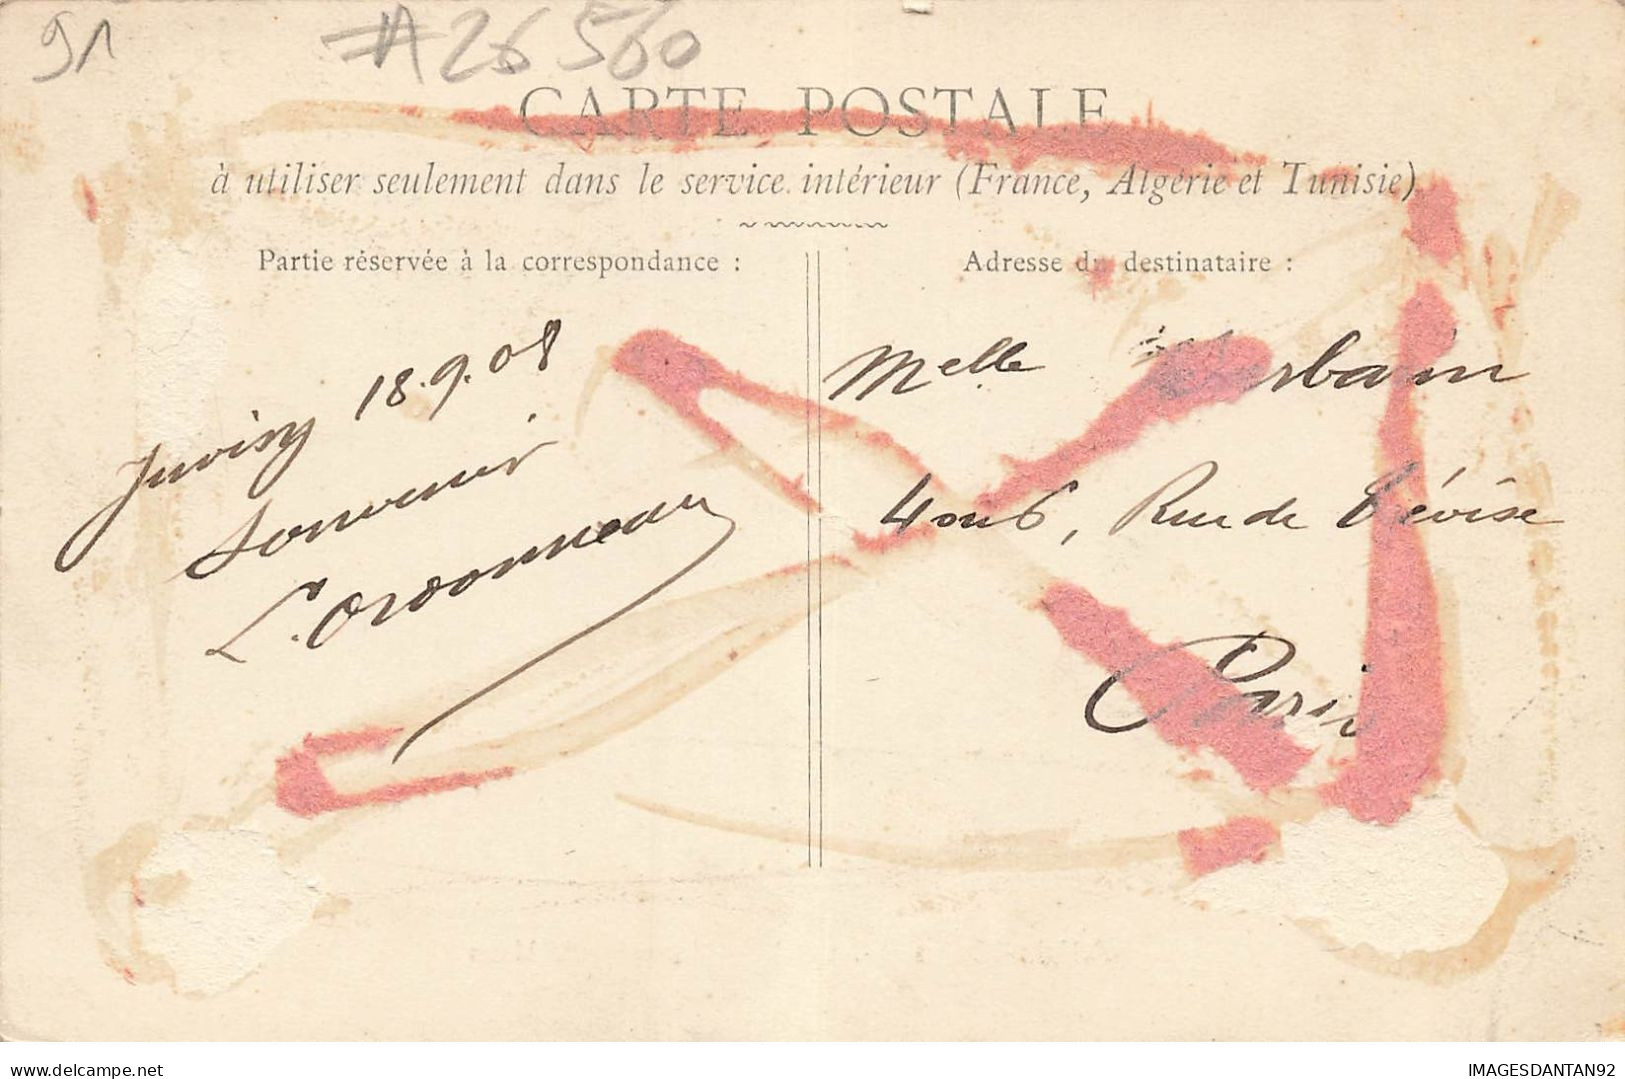 91
#26560
CARTE POSTALE
à utiliser seulement dans le service intérieur (France, Algérie et Tunisie)
Partie réservée à la correspondance :
Juvisy 18.9.08
Souvenir
L. Ordonneau
Adresse du destinataire :
Melle Urbain
4 ou 6, Rue de Trévise
Paris
IMAGESDANTAN92